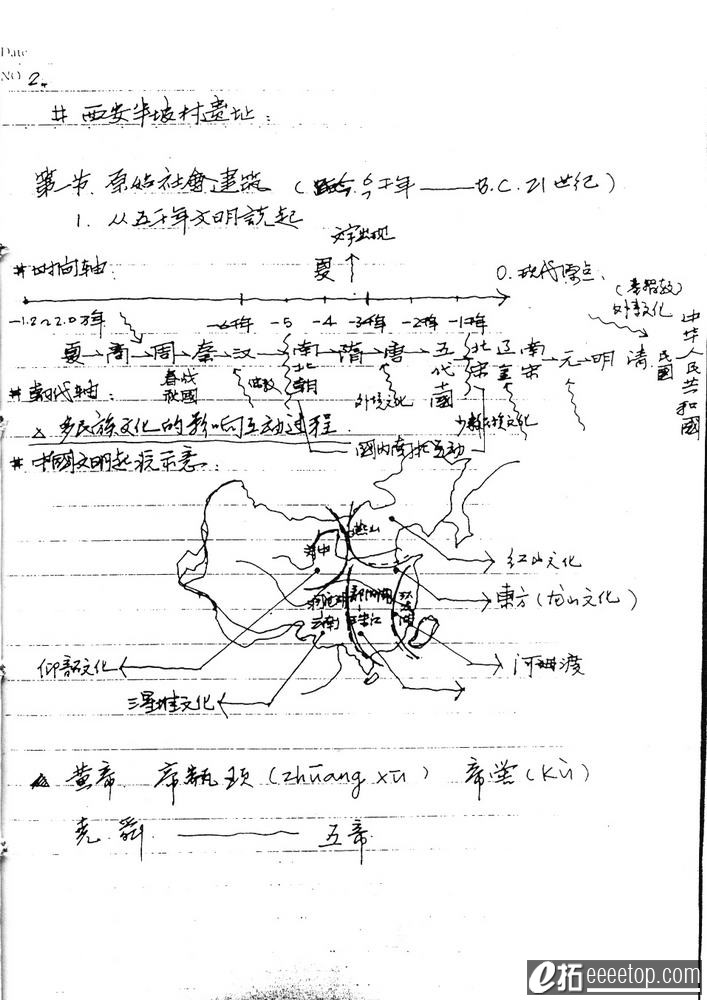 Date
NO 2.
# 西安半坡村遗址:
第一节 原始社會建筑 (距今6千年——B.C.21世纪)
1. 从五千年文明説起
文字出现
#时间轴: 夏 0.现代原点
-1.2~2.0万年 -6千年 -5 -4 -3千年 -2千年 -1千年
外事文化
夏→商→周→秦→汉→南北朝→隋→唐→五代十國→北宋→辽金→南宋→元→明→清 民國 中华人民共和國
春秋战國
#朝代轴: 佛教 外域文化 少數民族文化
△多民族文化的影响互动过程 國内南北互动
#中國文明起源示意:
燕山
红山文化
東方(龙山文化)
云南
珠江
仰韶文化
河姆渡
三星堆文化
△ 黄帝 帝颛顼(zhuāng xū) 帝喾(Kù)
尧 舜 —— 五帝
e拓 eeeetop.com